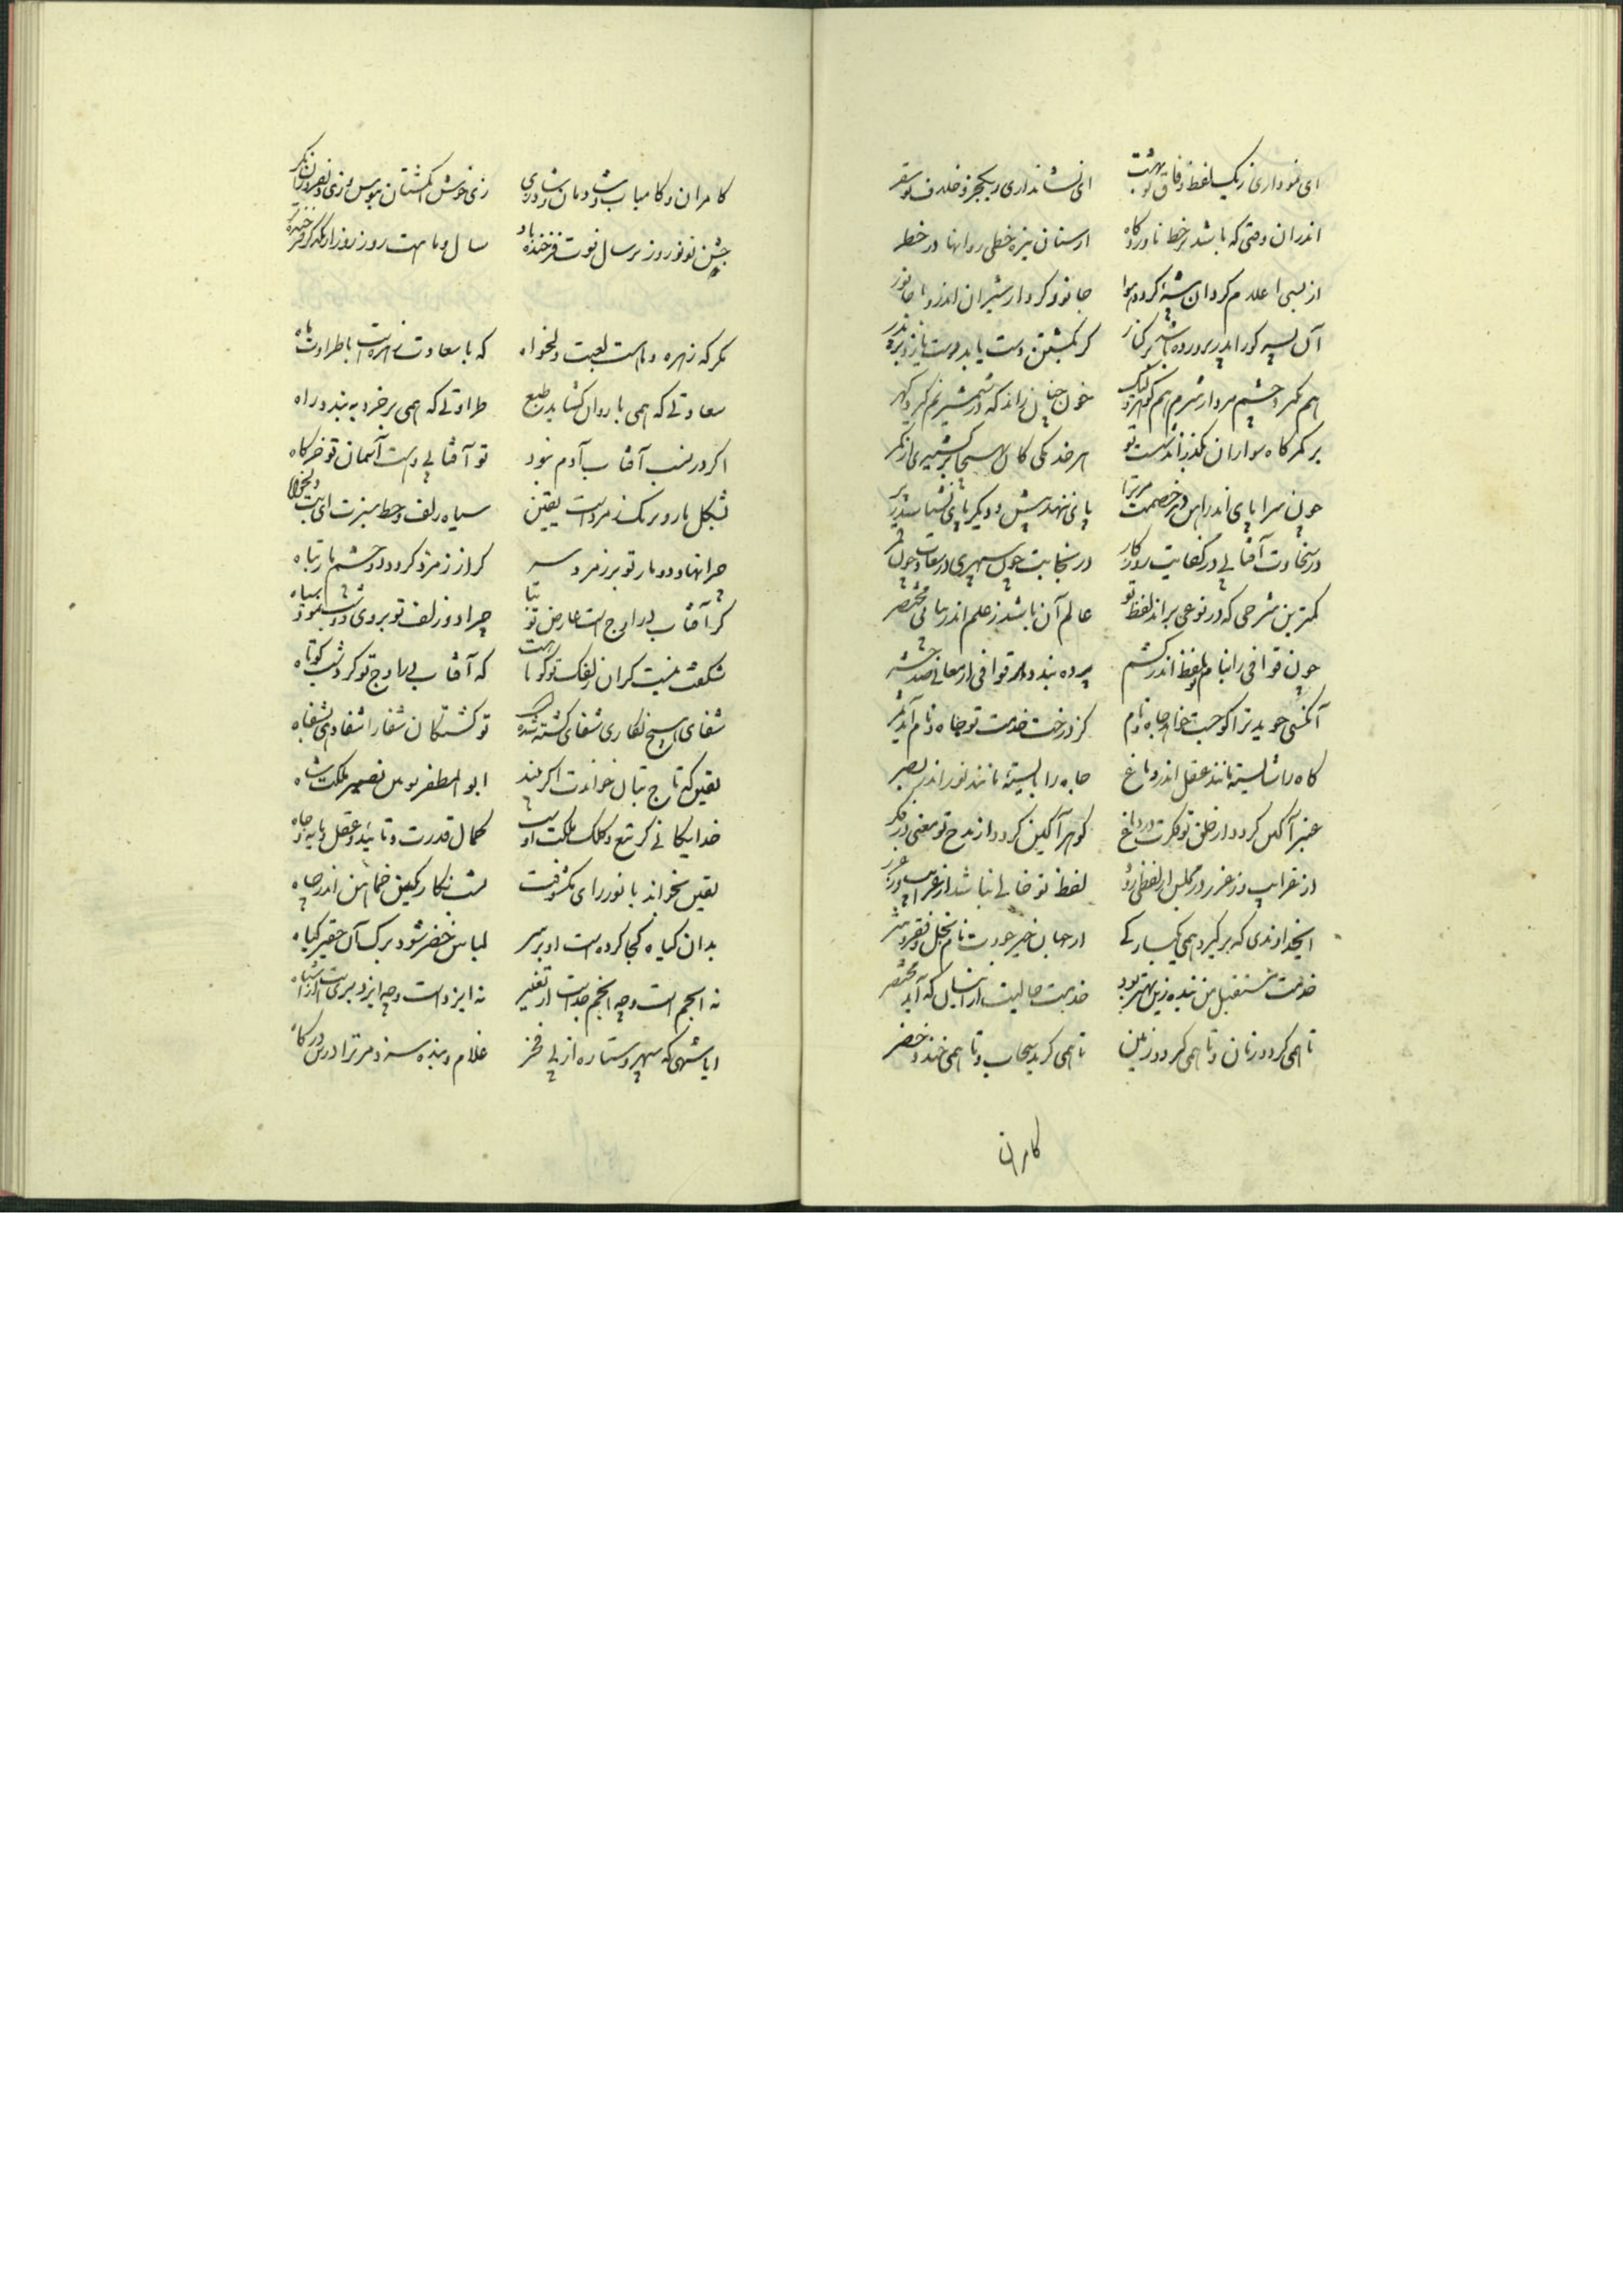 ای نموداری ز یک لفظ وفاق تو بهشت ای نشانداری ز یکجزو خلاف تو سقر
اندران وقتی که باشد بر خط ناوردگاه از سنان نیزه خطی روانها در خطر
از بسی اعلام گردان بیشه گردد هوا جانور کردار شیران اندرو نا جانور
آن پسر کورا پدر پرورده باشد بر کنار گر بکشتن دست یابد
هم نگیرد چشم مردار شرم هم خون چنان راند که در شمشیر نم گیرد گهر
بر کمرگاه سواران بگذراند دست تو هر خدنگی کان
چون سراپای اندر آهن خصمت مر ترا پای ننهد پیش و دیگر پای نشناسد ز سر
در سخاوت آفتابی در کفایت روزگار در نجابت چون سپهری در سعادت چون قمر
کمترین شرحی که در نوعی براند لفظ تو عالم آن باشد ز علم اندر بیانی مختصر
چون قوافی را بنام تو بلفظ اندر کشم پرده بندد بر قوافی از معانی صد حشر
آنکسی جوید ترا کو جست خواهد جاه و نام کز درخت خدمت تو جاه و نام آید ثمر
گاه را شایسته مانند عقل اندر دماغ جاه را بایسته مانند نور اندر بصر
عنبر آگین گردد از خلق تو فکرت در دماغ گوهر آگین گردد از مدح تو معنی در فکر
از غرایب وز غرر لفظ تو خالی نباشد از غرایب وز غرر
ایخداوندی که بر گیرد همی یکبارگی از جهان خیر جودت نام بخل و فقر و شر
خدمت مستقبل من بنده زین بهتر بود خدمت حالیست از اینسان که آید مختصر
تا همی گردد زمان و تا همی گردد زمین تا همی گرید سحاب و تا همی خندد خضر
کامران
کامران و کامیاب و شادمان و شاد زی زی خوش
جشن نو نوروز بر سال نوت فرخنده باد سال و ماهت روز روز از یکدگر فرخنده تر
مگر که زهره و ماهست لعبت دلخواه که با سعادت زهره است با طراوت ماه
سعادتی که همی با روان گشاید طبع طراوتی که همی بر خرد ببندد راه
اگر در نسب آفتاب آدم نبود تو آفتابی و هست آسمان تو خرگاه
بشکل مار و برنگ زمرد است یقین سیاه زلف و خط سبزت ای بت دلخواه
چرا نهاد دو مار تو بر زمرد سر گر از زمرد گردد دو چشم مار تباه
گر آفتاب در اوج است عارض تو بتا چرا دو زلف تو بر روی دو شب نمود سیاه
شگفت نیست گر آن زلفک تو کوتاهست که آفتاب در اوج تو کرد شب کوتاه
شفای هیچ نگاری شفای کشته نشد تو کشتگان شفا را شفا دهی بشفاه
یقین که تاج بتان خواندت اگر بیند ابوالمظفر یونس نصیر ملکت شاه
خدایگانی کز تیغ و کلک ملکت اوست کمال قدرت و تایید و عقل و پایه و جاه
یقین بخواند با نور رای مکشوفت نگین خماهن اندر چاه
بدان گیاه کجا کرده است او بر سر لباس خضر شود برگ آن حقیر گیاه
نه انجم است و چو انجم جداست از تغییر نه ایزد است و چو ایزد بریست از اشباه
ایا شهی که سپهر و ستاره از پی فخر غلام و بنده سزد مر ترا درین درگاه